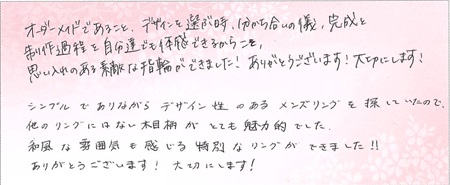 オーダーメイドであること、デザインを選ぶ時、分かち合いの儀、完成と
制作過程を自分達でも体感できるからこそ、
思い入れのある素敵な指輪ができました！ありがとうございます！大切にします！
シンプルでありながらデザイン性のあるメンズリングを探していたので、
他のリングにはない木目柄がとても魅力的でした。
和風な雰囲気も感じる特別なリングができました!!
ありがとうございます！大切にします！